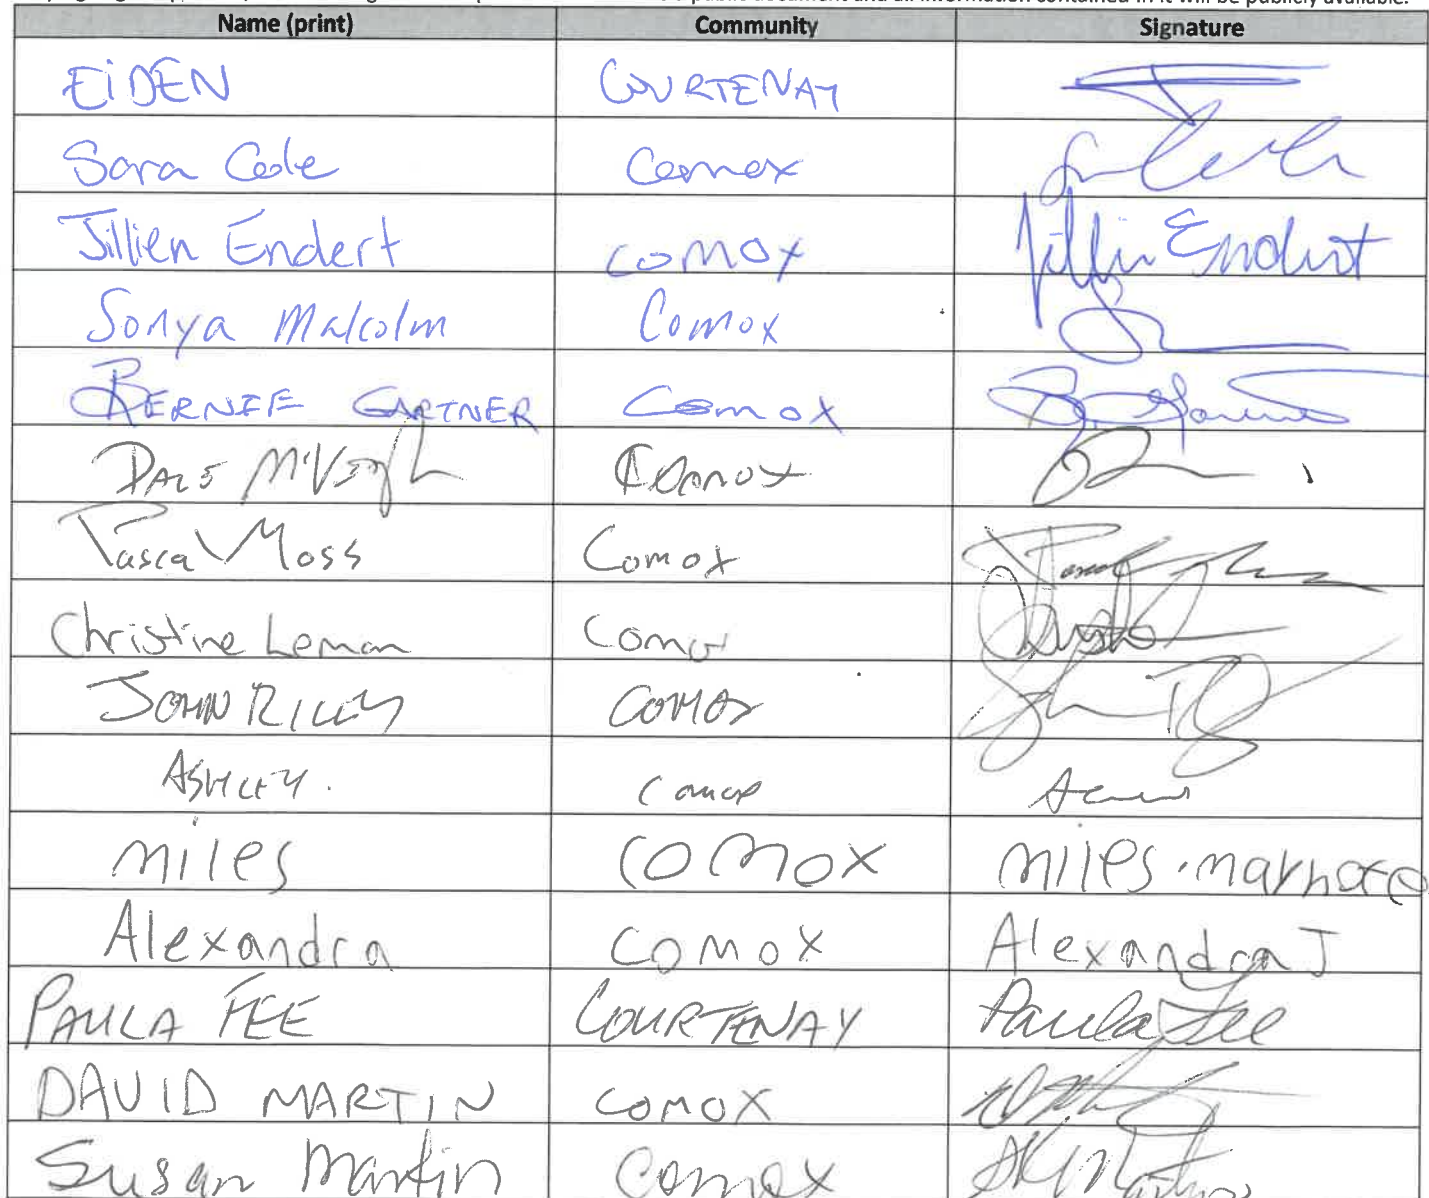 a public document and all information contained in it will be publicly available.
Name (print) Community Signature
EiDEN COURTENAY
Sara Cole Comox
Jillien Endert comox Jillien Endert
Sonya Malcolm Comox
BERNIE GARTNER Comox
DALE McVEIGH Comox
Pascal Moss Comox
Christine Leman Comox
JOHN RILEY COMOX
ASHLEY. Comox
miles COMOX miles.marhote
Alexandra COMOX Alexandra J
PAULA FEE COURTENAY Paula Fee
DAVID MARTIN COMOX
Susan Martin Comox